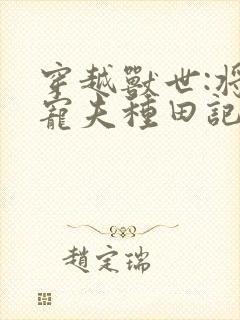 穿越獸世:將
寵夫種田記
趙定瑞